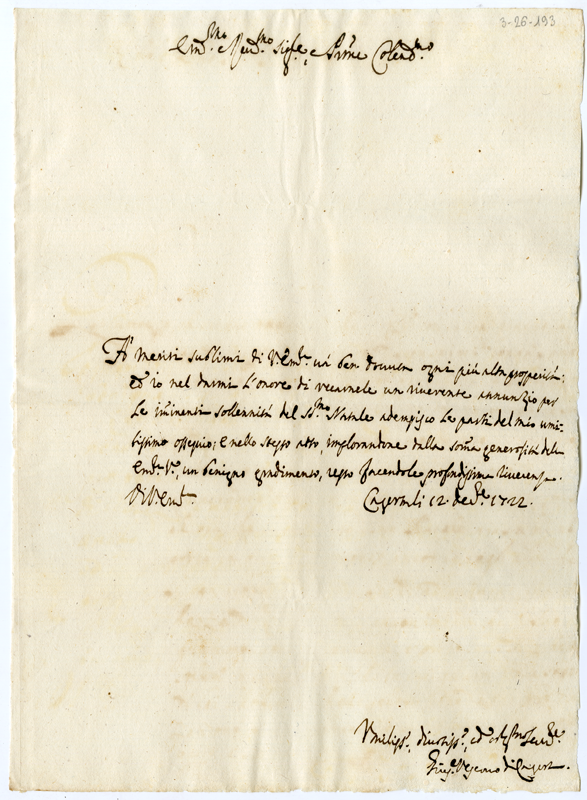 3-26-193
Em.mo e Rev.mo Sig.re, e P.rone Colend.mo
A' meriti sublimi di V. Em.za và ben douuta ogni più alta prosperità;
Et io nel darmi l'onore di recarnele un riuerente annunzio per
le im̃inenti sollennità del SS.mo Natale adempisco le parti del mio umi-
lissimo ossequio; e nello stesso atto, implorandone dalla som̃a generosità dell'
Em.za V.a, un benigno gradimento, resto facendole profondissima riuerenza.
Di V. Em.za Caserta li 12. de Xbre. 1722.
Vmiliss.o, diuotiss.o, ed obligat.mo Seru.re
Vescouo di Caserta.